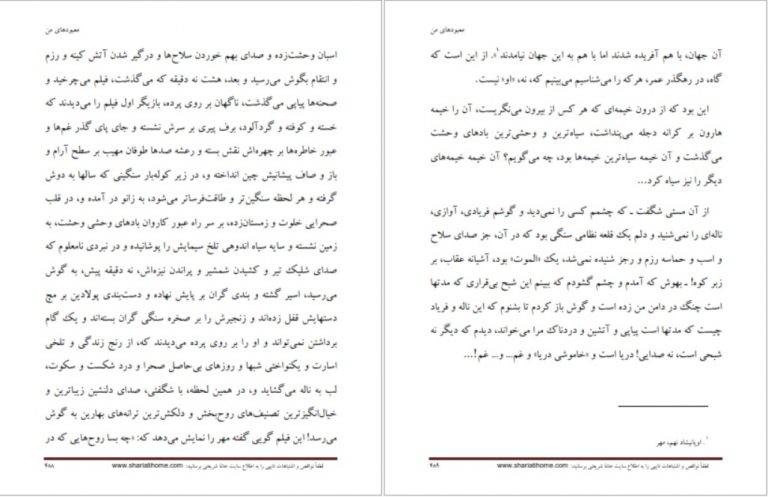 معبودهای من
اسبان وحشت‌زده و صدای بهم خوردن سلاح‌ها و درگیر شدن آتش کینه و رزم
و انتقام بگوش می‌رسید و بعد، هشت نه دقیقه که می‌گذشت، فیلم می‌چرخید و
صحنه‌ها پیاپی می‌گذشت، ناگهان بر روی پرده، بازیگر اول فیلم را می‌دیدند که
خسته و کوفته و گردآلود، برف پیری بر سرش نشسته و جای پای گذر غم‌ها و
عبور خاطره‌ها بر چهره‌اش نقش بسته و رعشه صدها طوفان مهیب بر سطح آرام و
باز و صاف پیشانیش چین انداخته و، در زیر کوله‌بار سنگینی که سالها به دوش
گرفته و هر لحظه سنگین‌تر و طاقت‌فرساتر می‌شود، به زانو در آمده و، در قلب
صحرایی خلوت و زمستان‌زده، بر سر راه عبور کاروان بادهای وحشی وحشت، به
زمین نشسته و سایه سیاه اندوهی تلخ سیمایش را پوشانیده و در نبردی نامعلوم که
صدای شلیک تیر و کشیدن شمشیر و پراندن نیزه‌اش، نه دقیقه پیش، به گوش
می‌رسید، اسیر گشته و بندی گران بر پایش نهاده و دست‌بندی پولادین بر مچ
دستهایش قفل زده‌اند و زنجیرش را بر صخره سنگی گران بسته‌اند و یك گام
برداشتن نمی‌تواند و او را بر روی پرده می‌دیدند که، از رنج زندگی و تلخی
اسارت و یکنواختی شبها و روزهای بی‌حاصل صحرا و درد شکست و سکوت،
لب به ناله می‌گشاید و، در همین لحظه، با شگفتی، صدای دلنشین زیباترین و
خیال‌انگیزترین تصنیف‌های روح‌بخش و دلکش‌ترین ترانه‌های بهارین به گوش
می‌رسد! این فیلم گویی گفته مهر را نمایش می‌دهد که: «چه بسا روح‌هایی که در
لطفاً نواقص و اشتباهات تایپی را به اطلاع سایت خانهٔ شریعتی برسانید: www.shariatihome.com ۴۸۸
معبودهای من
آن جهان، با هم آفریده شدند اما با هم به این جهان نیامدند۱». از این است که
گاه، در رهگذر عمر، هرکه را می‌شناسیم می‌بینیم که، نه، «او» نیست.
این بود که از درون خیمه‌ای که هر کس از بیرون می‌نگریست، آن را خیمه
هارون بر کرانه دجله می‌پنداشت، سیاه‌ترین و وحشی‌ترین بادهای وحشت
می‌گذشت و آن خیمه سیاه‌ترین خیمه‌ها بود، چه می‌گویم؟ آن خیمه خیمه‌های
دیگر را نیز سیاه کرد...
از آن مستی شگفت ـ که چشمم کسی را نمی‌دید و گوشم فریادی، آوازی،
ناله‌ای را نمی‌شنید و دلم یك قلعه نظامی سنگی بود که در آن، جز صدای سلاح
و اسب و حماسه رزم و رجز شنیده نمی‌شد، یك «الموت» بود، آشیانه عقاب، بر
زبر کوه! ـ بهوش که آمدم و چشم گشودم که ببینم این شبح بی‌قراری که مدتها
است چنگ در دامن من زده است و گوش باز کردم تا بشنوم که این ناله و فریاد
چیست که مدتها است پیاپی و آتشین و دردناك مرا می‌خواند، دیدم که دیگر نه
شبحی است، نه صدایی! دریا است و «خاموشی دریا» و غم... و... غم!...
۱. اوپانیشاد نهم، مهر
لطفاً نواقص و اشتباهات تایپی را به اطلاع سایت خانهٔ شریعتی برسانید: www.shariatihome.com ۴۸۹